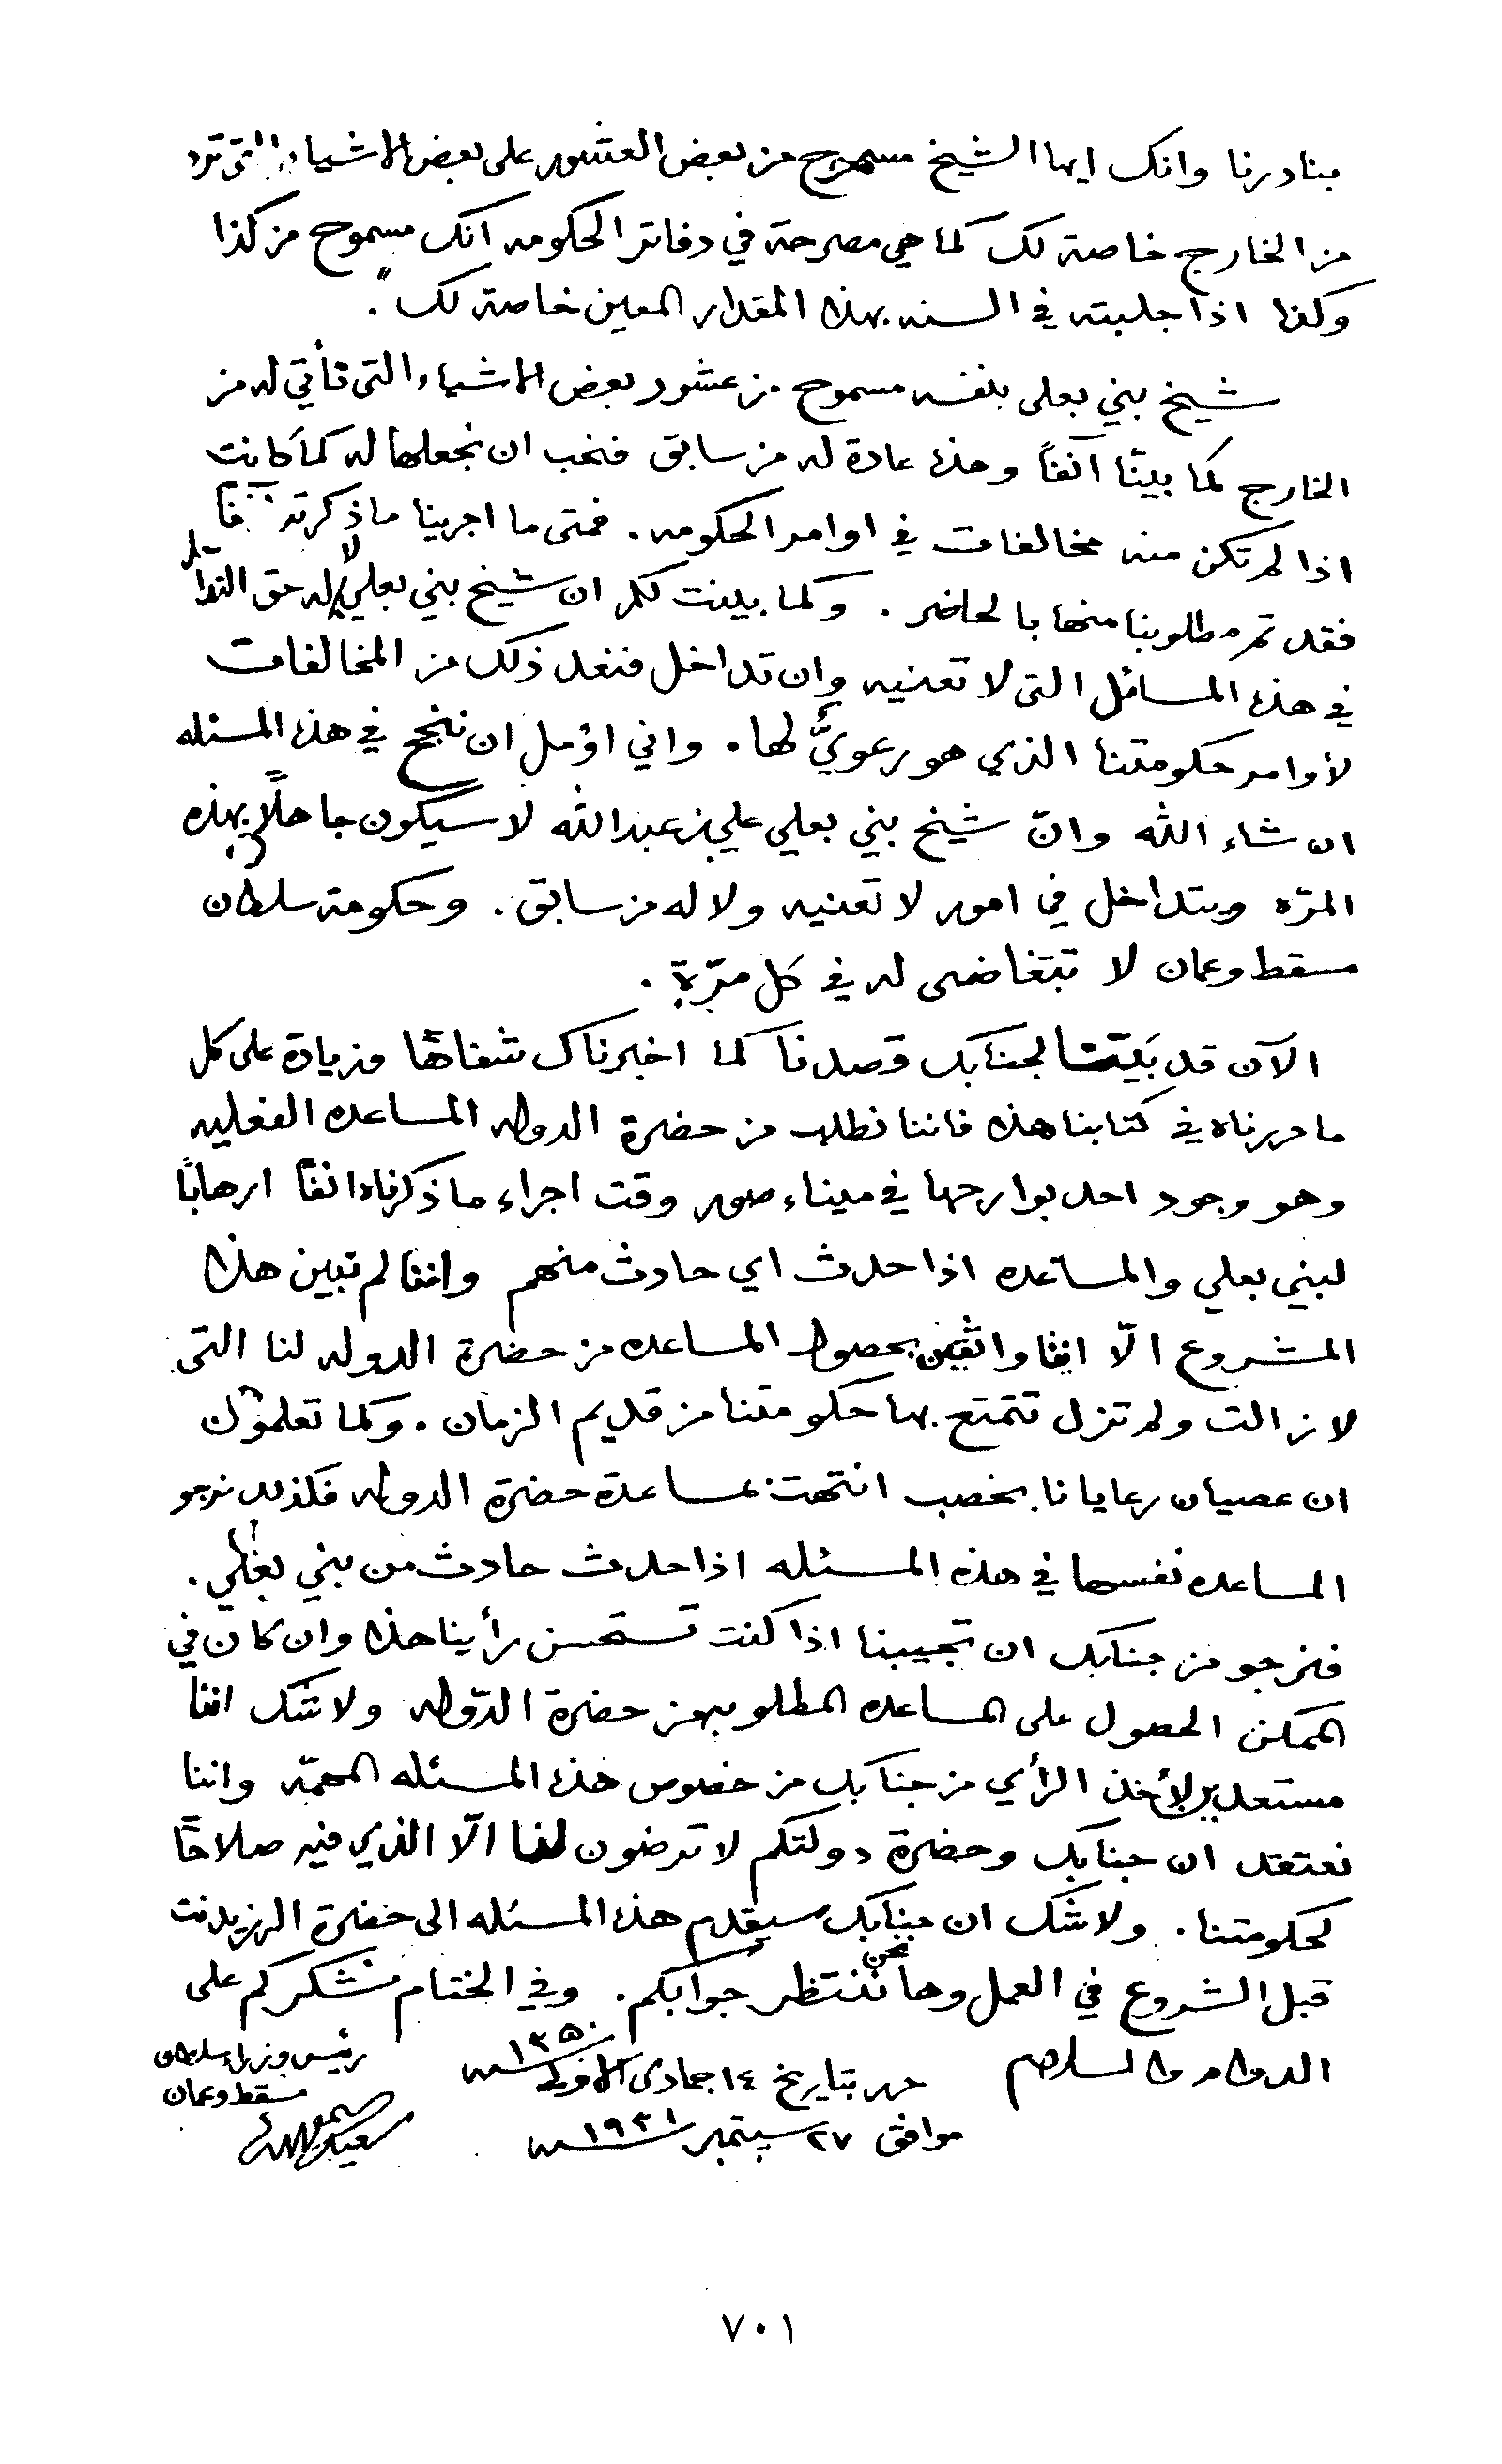 بنادرنا وانك ايها الشيخ مسموح من بعض العشور على بعض الاشياء التي ترد
من الخارج خاصة لك كما هي مصرحة في دفاتر الحكومه انك مسموح من كذا
وكذا اذا جلبته في السنه بهذا المقدار المعين خاصة لك".
شيخ بني بعلي بنفسه مسموح من عشور بعض الاشياء التي تأتي له من
الخارج كما بينّا آنفاً وهذه عادة له من سابق فنحب ان نجعلها له كما كانت
اذا لم تكن منه مخالفات في اوامر الحكومه. فمتى ما اجرينا ما ذكرته آنفاً
فقد تم مطلوبنا منها بالحاضر. وكما بينت لكم ان شيخ بني بعلي لا له حق التداخل
في هذه المسائل التي لا تعنيه وإن تداخل فنعد ذلك من المخالفات
لأوامر حكومتنا الذي هو رعويٌّ لها. واني اؤمل ان ننجح في هذه المسئله
ان شاء الله وانّ شيخ بني بعلي علي بن عبدالله لا سيكون جاهلاً بهذه
المرّه ويتداخل في امور لا تعنيه ولا له من سابق. وحكومة سلطان
مسقط وعمان لا تتغاضى له في كل مرّةٍ.
الآن قد بَيّنّا لجنابك قصدنا كما اخبرناك شفاهًا وزيادة على كل
ما حررناه في كتابنا هذه فاننا نطلب من حضرة الدوله المساعده الفعليه
وهو وجود احد بوارجها في ميناء صور وقت اجراء ما ذكرناه انفاً ارهابًا
لبني بعلي والمساعده اذا حدث اي حادث منهم واننا لم نبين هذا
المشروع الّا اننا واثقين بحصول المساعده من حضرة الدوله لنا التي
لا زالت ولم تزل تتمتع بها حكومتنا من قديم الزمان. وكما تعلمون
ان عصيان رعايانا بخصب انتهت بمساعدة حضرة الدوله فلذلك نرجو
المساعده نفسها في هذه المسئله اذا حدث حادث من بني بعلي.
فنرجو من جنابك ان تجيبنا اذا كنت تستحسن رأينا هذا وان كان في
الممكن الحصول على المساعده المطلوبه من حضرة الدّوله ولا شك اننا
مستعدين لأخذ الرأي من جنابك من خصوص هذه المسئله المهمّه واننا
نعتقد ان جنابك وحضرة دولتكم لا ترضون لنا الّا الذي فيه صلاحًا
لحكومتنا. ولا شك ان جنابك سيقدم هذه المسئله الى حضرة الرزيدنت
قبل الشروع في العمل وها نحن ننتظر جوابكم. وفي الختام نشكركم على
الدوام والسلام
حرر بتاريخ ١٤ جمادى الاولى سنة ١٣٥٠
موافق ٢٧ سپتمبر سنة ١٩٣١
رئيس وزراء سلطان
مسقط وعمان
٧٠١